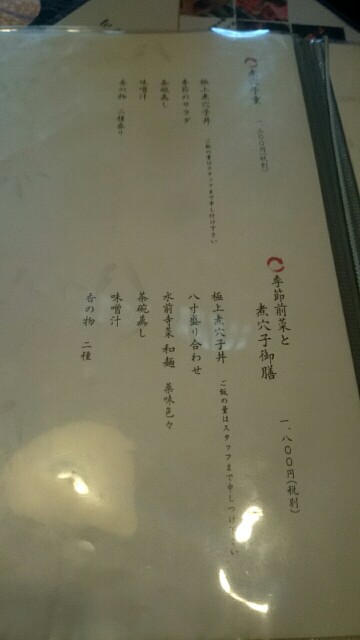 煮穴子重
一、六〇〇円(税別)
極上煮穴子丼
ご飯の量はスタッフまで申し付け下さい
季節のサラダ
茶碗蒸し
味噌汁
香の物 二種盛り
季節前菜と
煮穴子御膳
一、八〇〇円(税別)
極上煮穴子丼
ご飯の量はスタッフまで申しつけ下さい
八寸盛り合わせ
水前寺菜 和麺 薬味色々
茶碗蒸し
味噌汁
香の物 二種